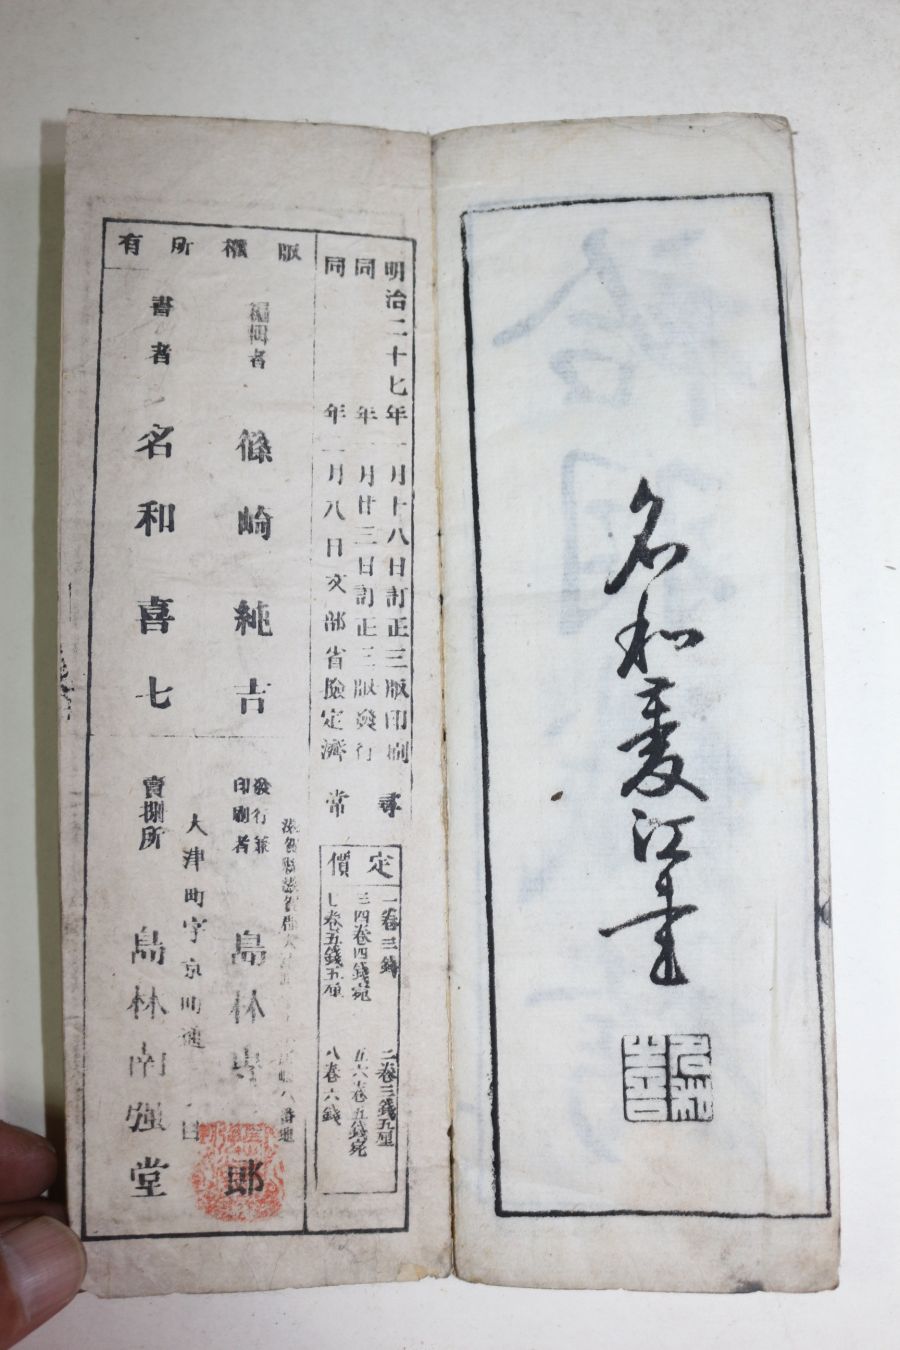 名和菱江書
明治二十七年一月十八日訂正三版印刷
同年一月廿三日訂正三版發行
同年一月八日文部省檢定濟
尋常
定價
一卷三錢
二卷三錢五厘
三四卷四錢宛
五六卷五錢宛
七卷五錢五厘
八卷六錢
版權所有
編輯者
篠崎純吉
書者
名和喜七
發行兼印刷者
島林専二郎
大津町字京町通
賣捌所
島林南強堂